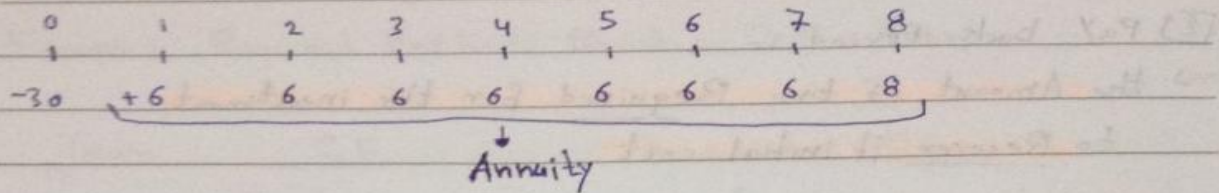 0 1 2 3 4 5 6 7 8
-30 +6 6 6 6 6 6 6 8
Annuity